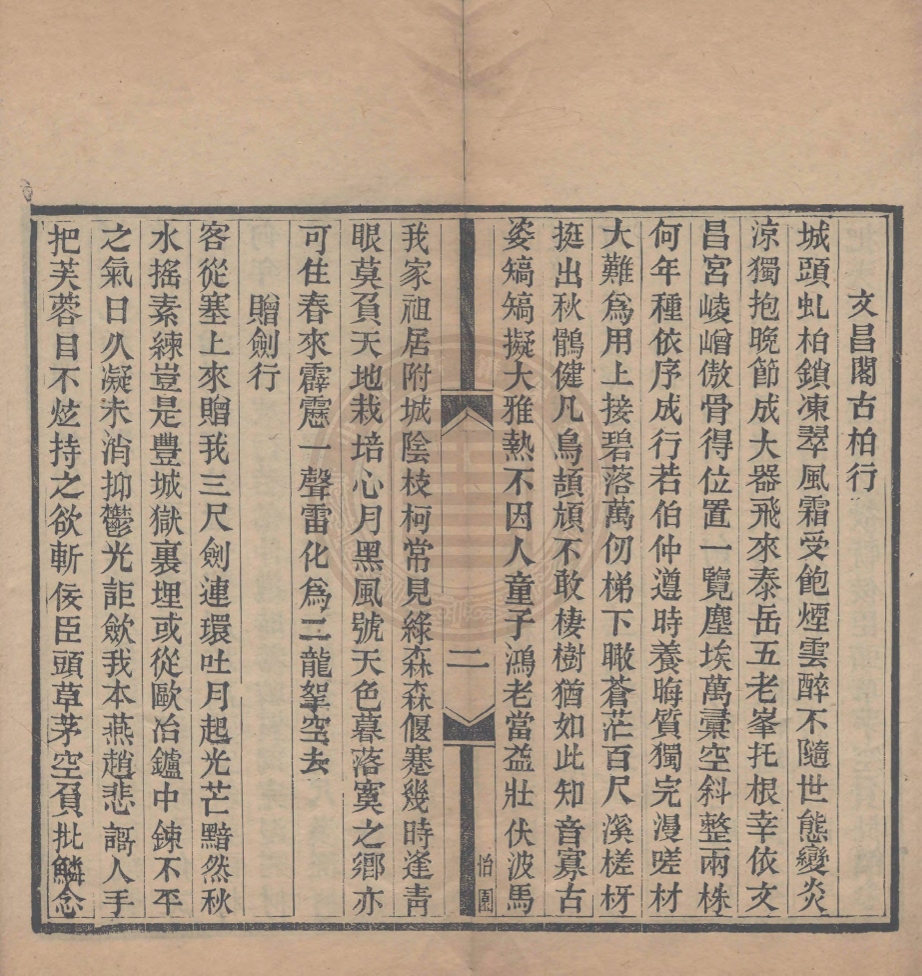 文昌閣古柏行
城頭虬柏鎖凍翠風霜受飽煙雲醉不隨世態變炎
涼獨抱晚節成大器飛來泰岳五老峯托根幸依文
昌宮崚嶒傲骨得位置一覽塵埃萬彙空斜整兩株
何年種依序成行若伯仲遵時養晦質獨完漫嗟材
大難爲用上接碧落萬仞梯下瞰蒼茫百尺溪槎枒
挺出秋鶻健凡鳥頡頏不敢棲樹猶如此知音寡古
姿熇熇擬大雅熱不因人童子鴻老當益壯伏波馬
二
怡園
我家祖居附城陰枝柯常見綠森森偃蹇幾時逢靑
眼莫負天地栽培心月黑風號天色暮落寞之鄉亦
可住春來霹靂一聲雷化爲二龍挐空去
贈劍行
客從塞上來贈我三尺劍連環吐月起光芒黯然秋
水搖素練豈是豐城獄裏埋或從歐冶鑪中鍊不平
之氣日久凝未消抑鬱光詎歛我本燕趙悲謌人手
把芙蓉目不炫持之欲斬佞臣頭草茅空負批鱗念